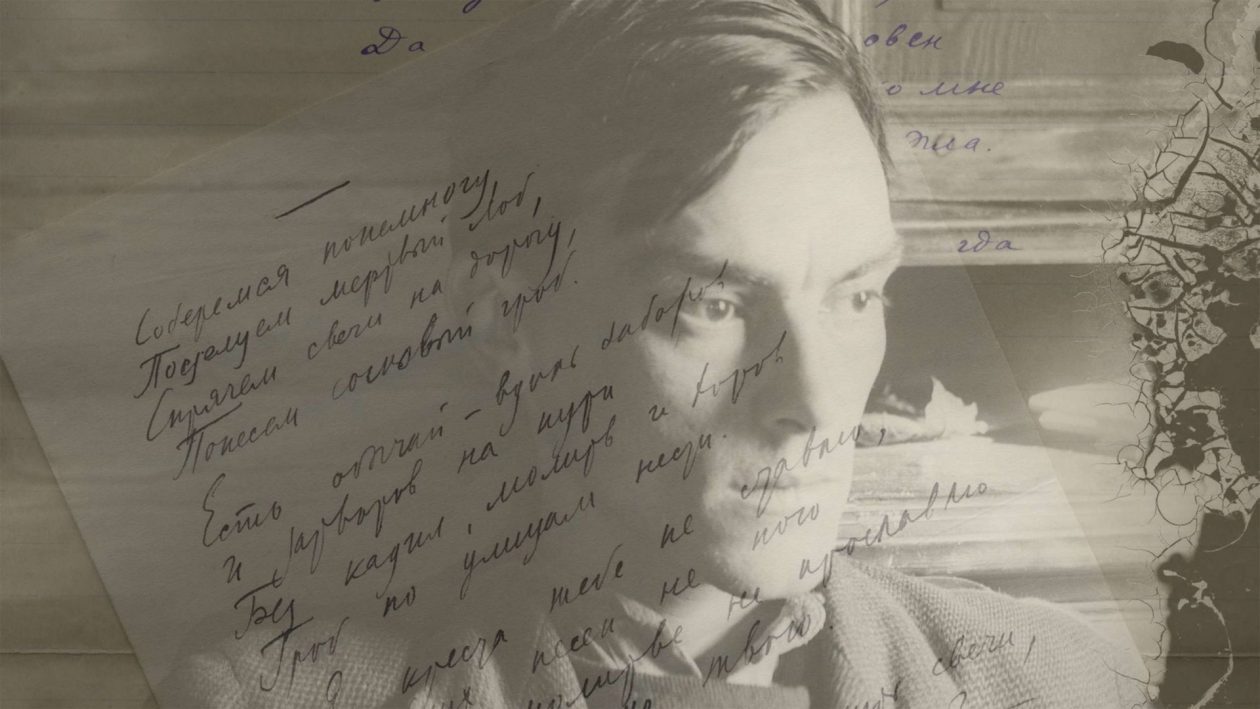 Да
овен
о мне
гда
Соберемся понемногу
Поцелуем мертвый лоб,
Спрячем свечи на дорогу,
Понесем сосновый гроб.
Есть обычай – вдоль заборов
И затворов на пути
Без кадил, молитв и хоров
Гроб по улицам нести.
креста тебе не ставлю,
их песен не пою
молитве не прославлю
твою.
свечи,